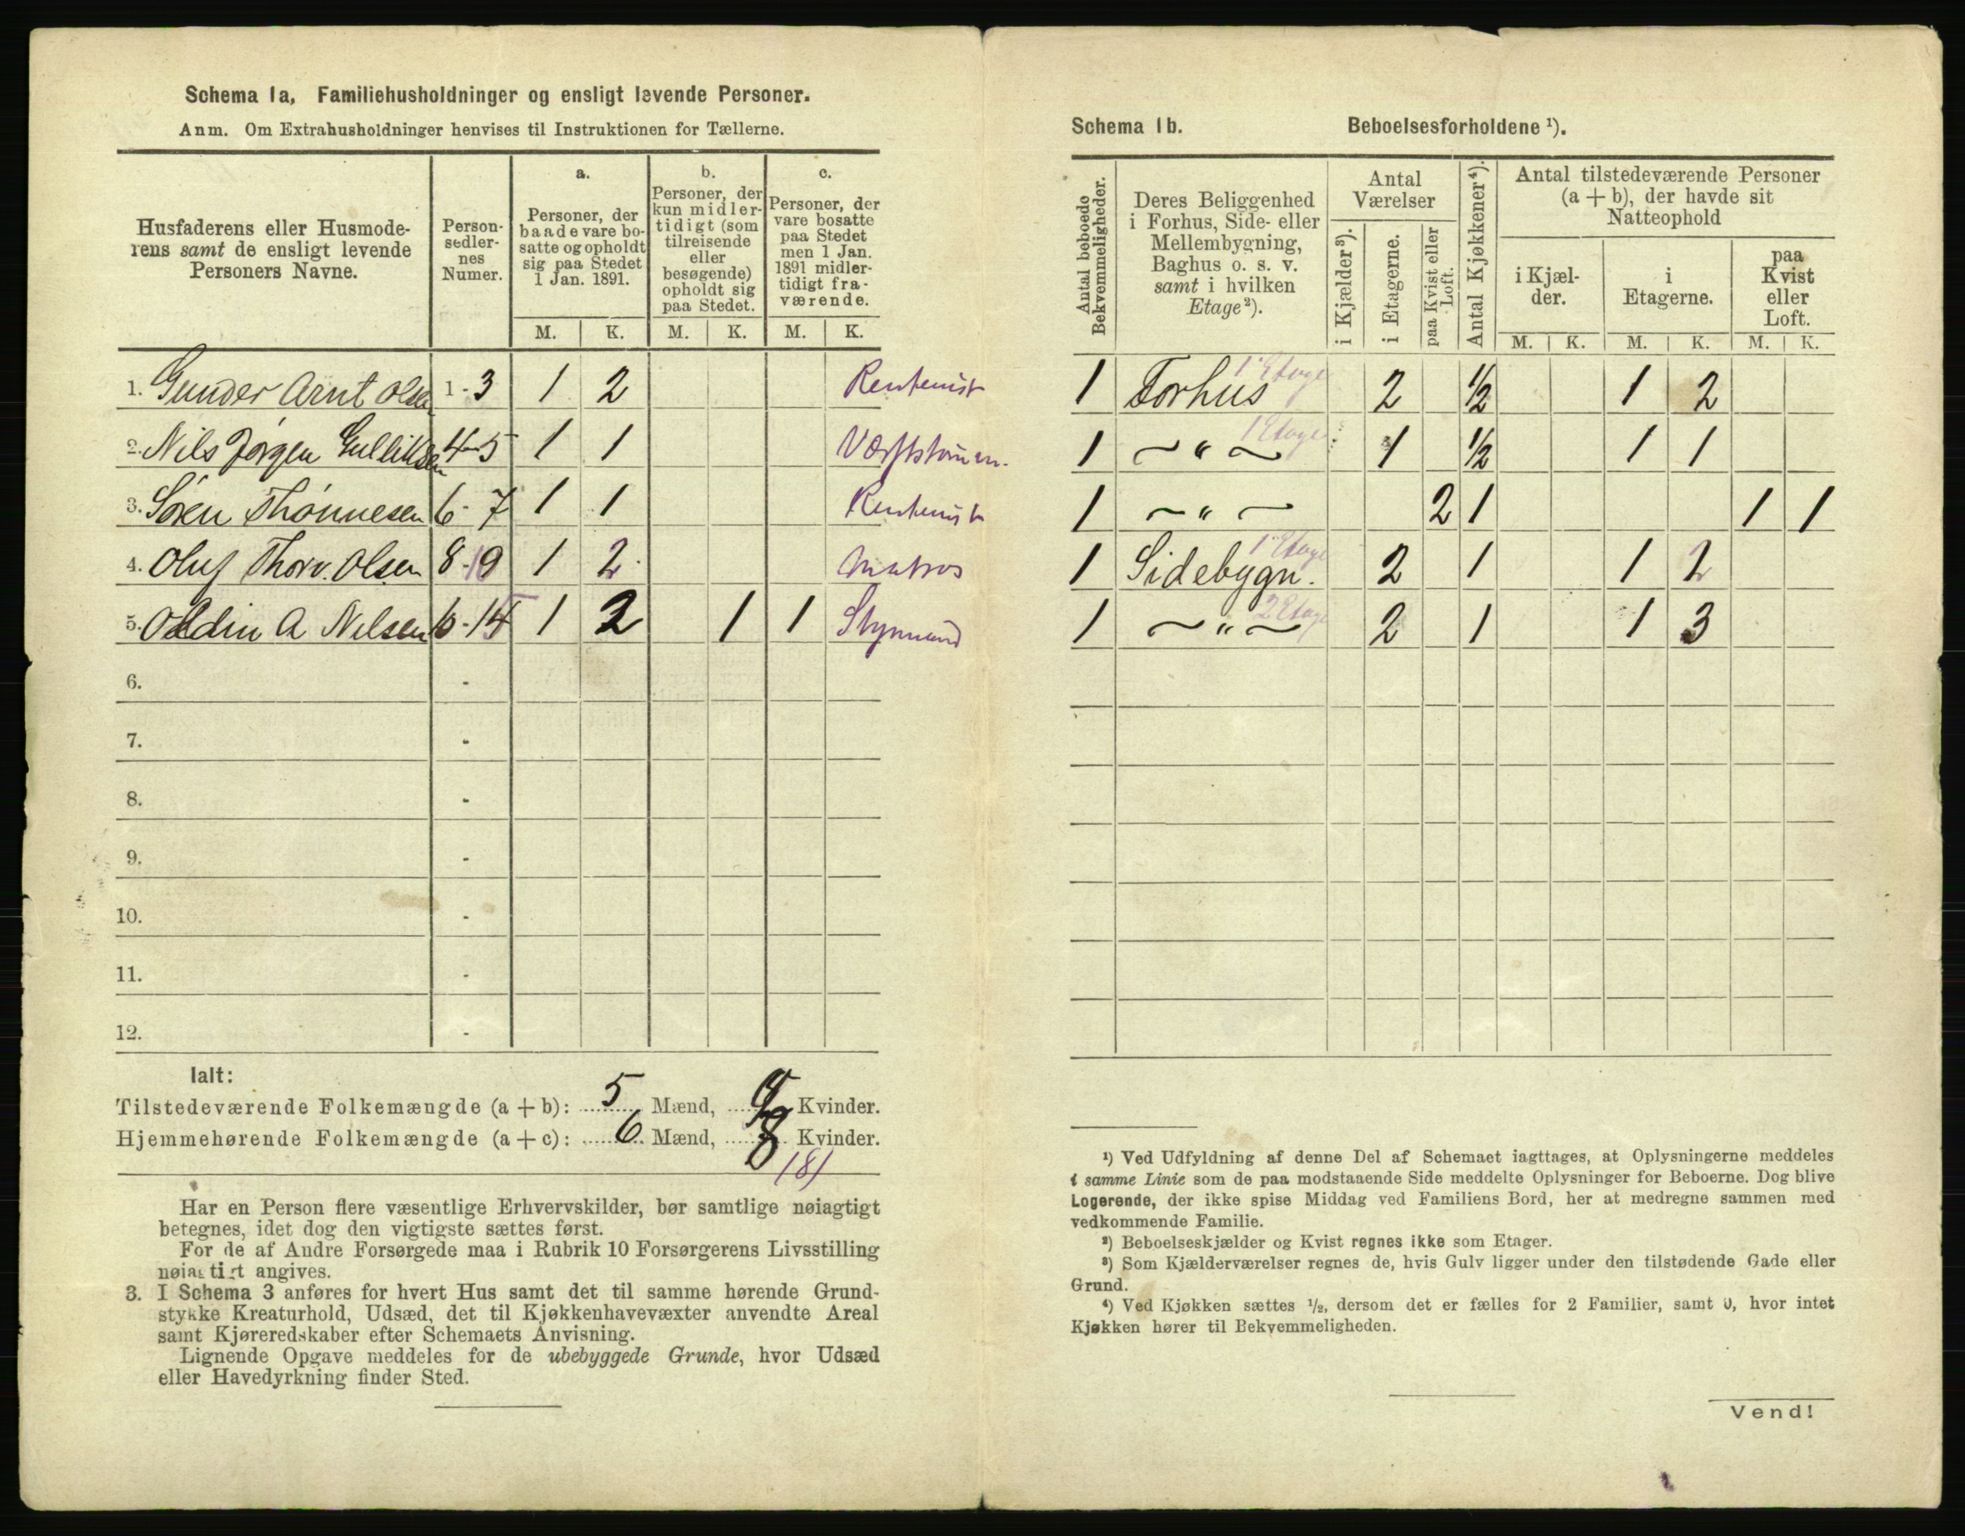 Schema 1a, Familiehusholdninger og ensligt levende Personer.
Anm. Om Extrahusholdninger henvises til Instruktionen for Tællerne.
Husfaderens eller Husmode-
rens samt de ensligt levende
Personers Navne.
Person-
sedler-
nes
Numer.
a.
Personer, der
baade vare bo-
satte og opholdt
sig paa Stedet
1 Jan. 1891.
b.
Personer, der
kun midler-
tidigt (som
tilreisende
eller
besøgende)
opholdt sig
paa Stedet.
c.
Personer, der
vare bosatte
paa Stedet
men 1 Jan.
1891 midler-
tidigt fra-
værende.
M. K. M. K. M. K.
1. Gunder Arnt Olsen 1-3 1 2 Rentenist
2. Nils Jørgen Gulliksen 4-5 1 1
3. Søren Thønnesen 6-7 1 1 Rentenist
4. Oluf Thorv. Olsen 8-10 1 2 Matros
5. A Nilsen 1 2 1 1 Styrmand
6. -
7. -
8. -
9. -
10. -
11. -
12. -
Ialt:
Tilstedeværende Folkemængde (a + b): 5 Mænd, 9 Kvinder.
Hjemmehørende Folkemængde (a + c): 6 Mænd, 8 Kvinder.
(8)
Har en Person flere væsentlige Erhvervskilder, bør samtlige nøiagtigt
betegnes, idet dog den vigtigste sættes først.
For de af Andre Forsørgede maa i Rubrik 10 Forsørgerens Livsstilling
nøiagtigt angives.
3. I Schema 3 anføres for hvert Hus samt det til samme hørende Grund-
stykke Kreaturhold, Udsæd, det til Kjøkkenhavevæxter anvendte Areal
samt Kjøreredskaber efter Schemaets Anvisning.
Lignende Opgave meddeles for de ubebyggede Grunde, hvor Udsæd
eller Havedyrkning finder Sted.
Schema 1b. Beboelsesforholdene ¹).
Antal beboede
Bekvemmeligheder.
Deres Beliggenhed
i Forhus, Side- eller
Mellembygning,
Baghus o. s. v.
samt i hvilken
Etage²).
Antal
Værelser
i Kjælder³).
i Etagerne.
paa Kvist eller
Loft.
Antal Kjøkkener⁴).
Antal tilstedeværende Personer
(a + b), der havde sit
Natteophold
i Kjæl-
der.
i
Etagerne.
paa
Kvist
eller
Loft.
M. K. M. K. M. K.
1 Forhus 1 Etage 2 1/2 1 2
1 ~ " ~ 1 Etage 1 1/2 1 1
1 ~ " ~ 2 1 1 1
1 Sidebygn. 1 Etage 2 1 1 2
1 ~ " ~ 2 Etage 2 1 1 3
¹) Ved Udfyldning af denne Del af Schemaet iagttages, at Oplysningerne meddeles
i samme Linie som de paa modstaaende Side meddelte Oplysninger for Beboerne. Dog blive
Logerende, der ikke spise Middag ved Familiens Bord, her at medregne sammen med
vedkommende Familie.
²) Beboelseskjælder og Kvist regnes ikke som Etager.
³) Som Kjælderværelser regnes de, hvis Gulv ligger under den tilstødende Gade eller
Grund.
⁴) Ved Kjøkken sættes ½, dersom det er fælles for 2 Familier, samt 0, hvor intet
Kjøkken hører til Bekvemmeligheden.
Vend!